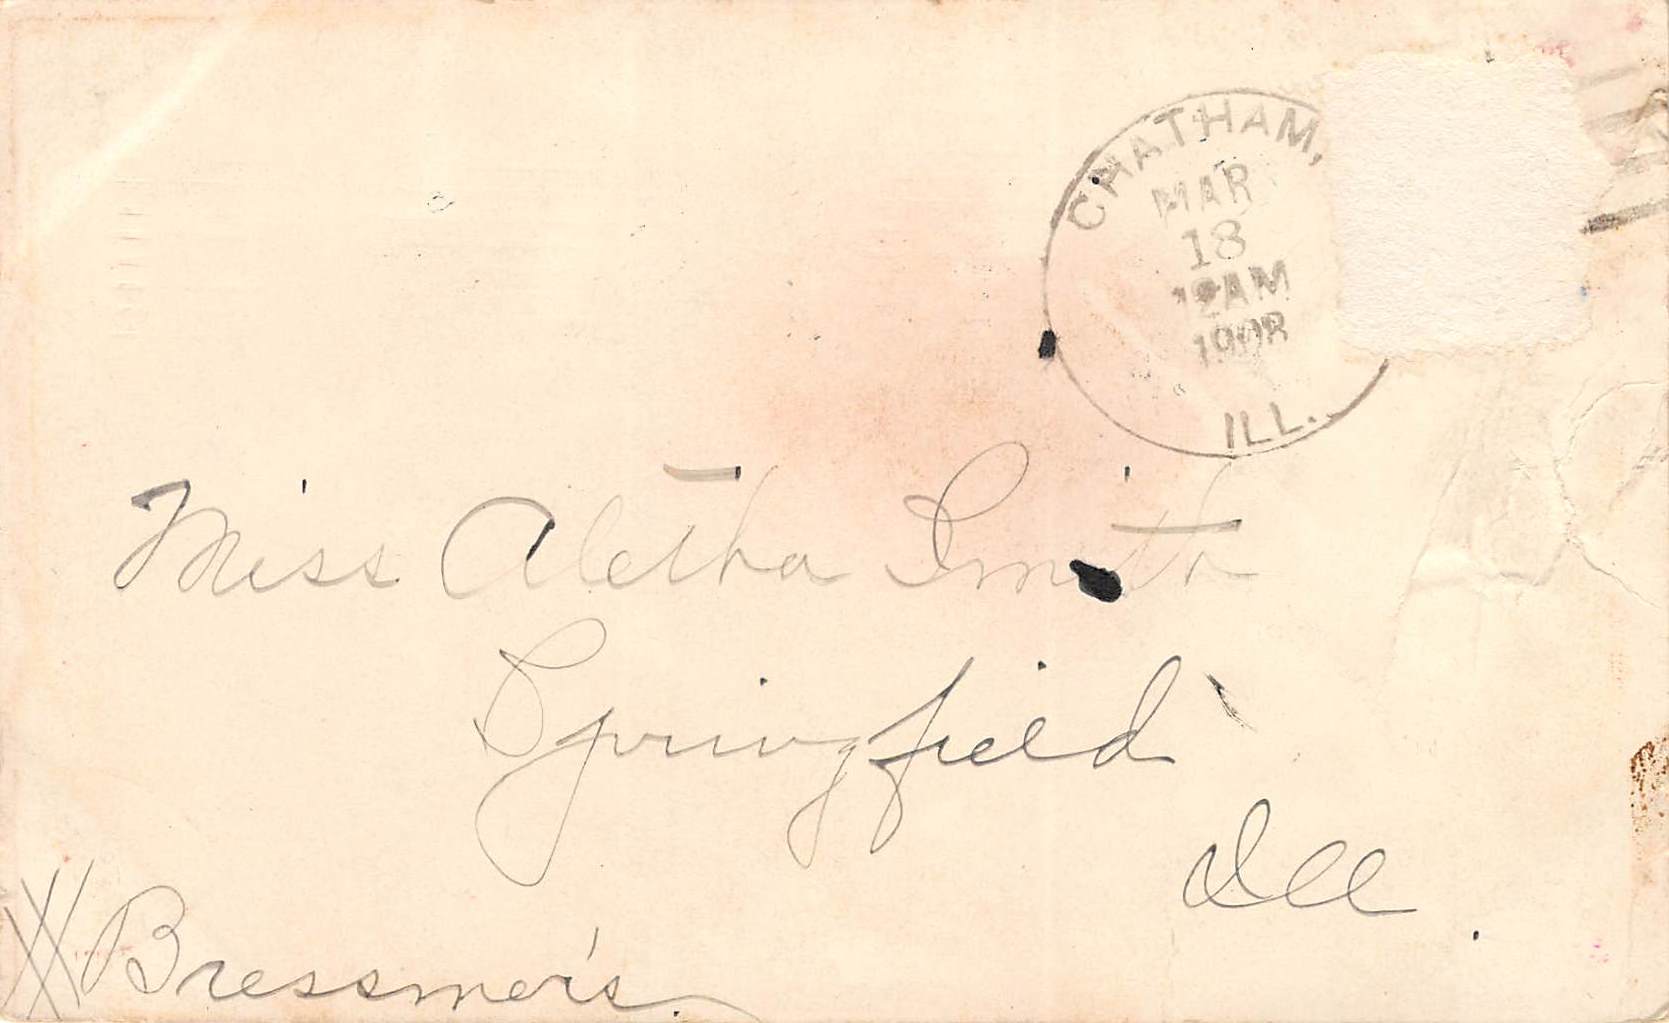 CHATHAM,
MAR
18
12AM
1908
ILL.
Miss Aletha Smith
Springfield
Ill.
Bressmer's.